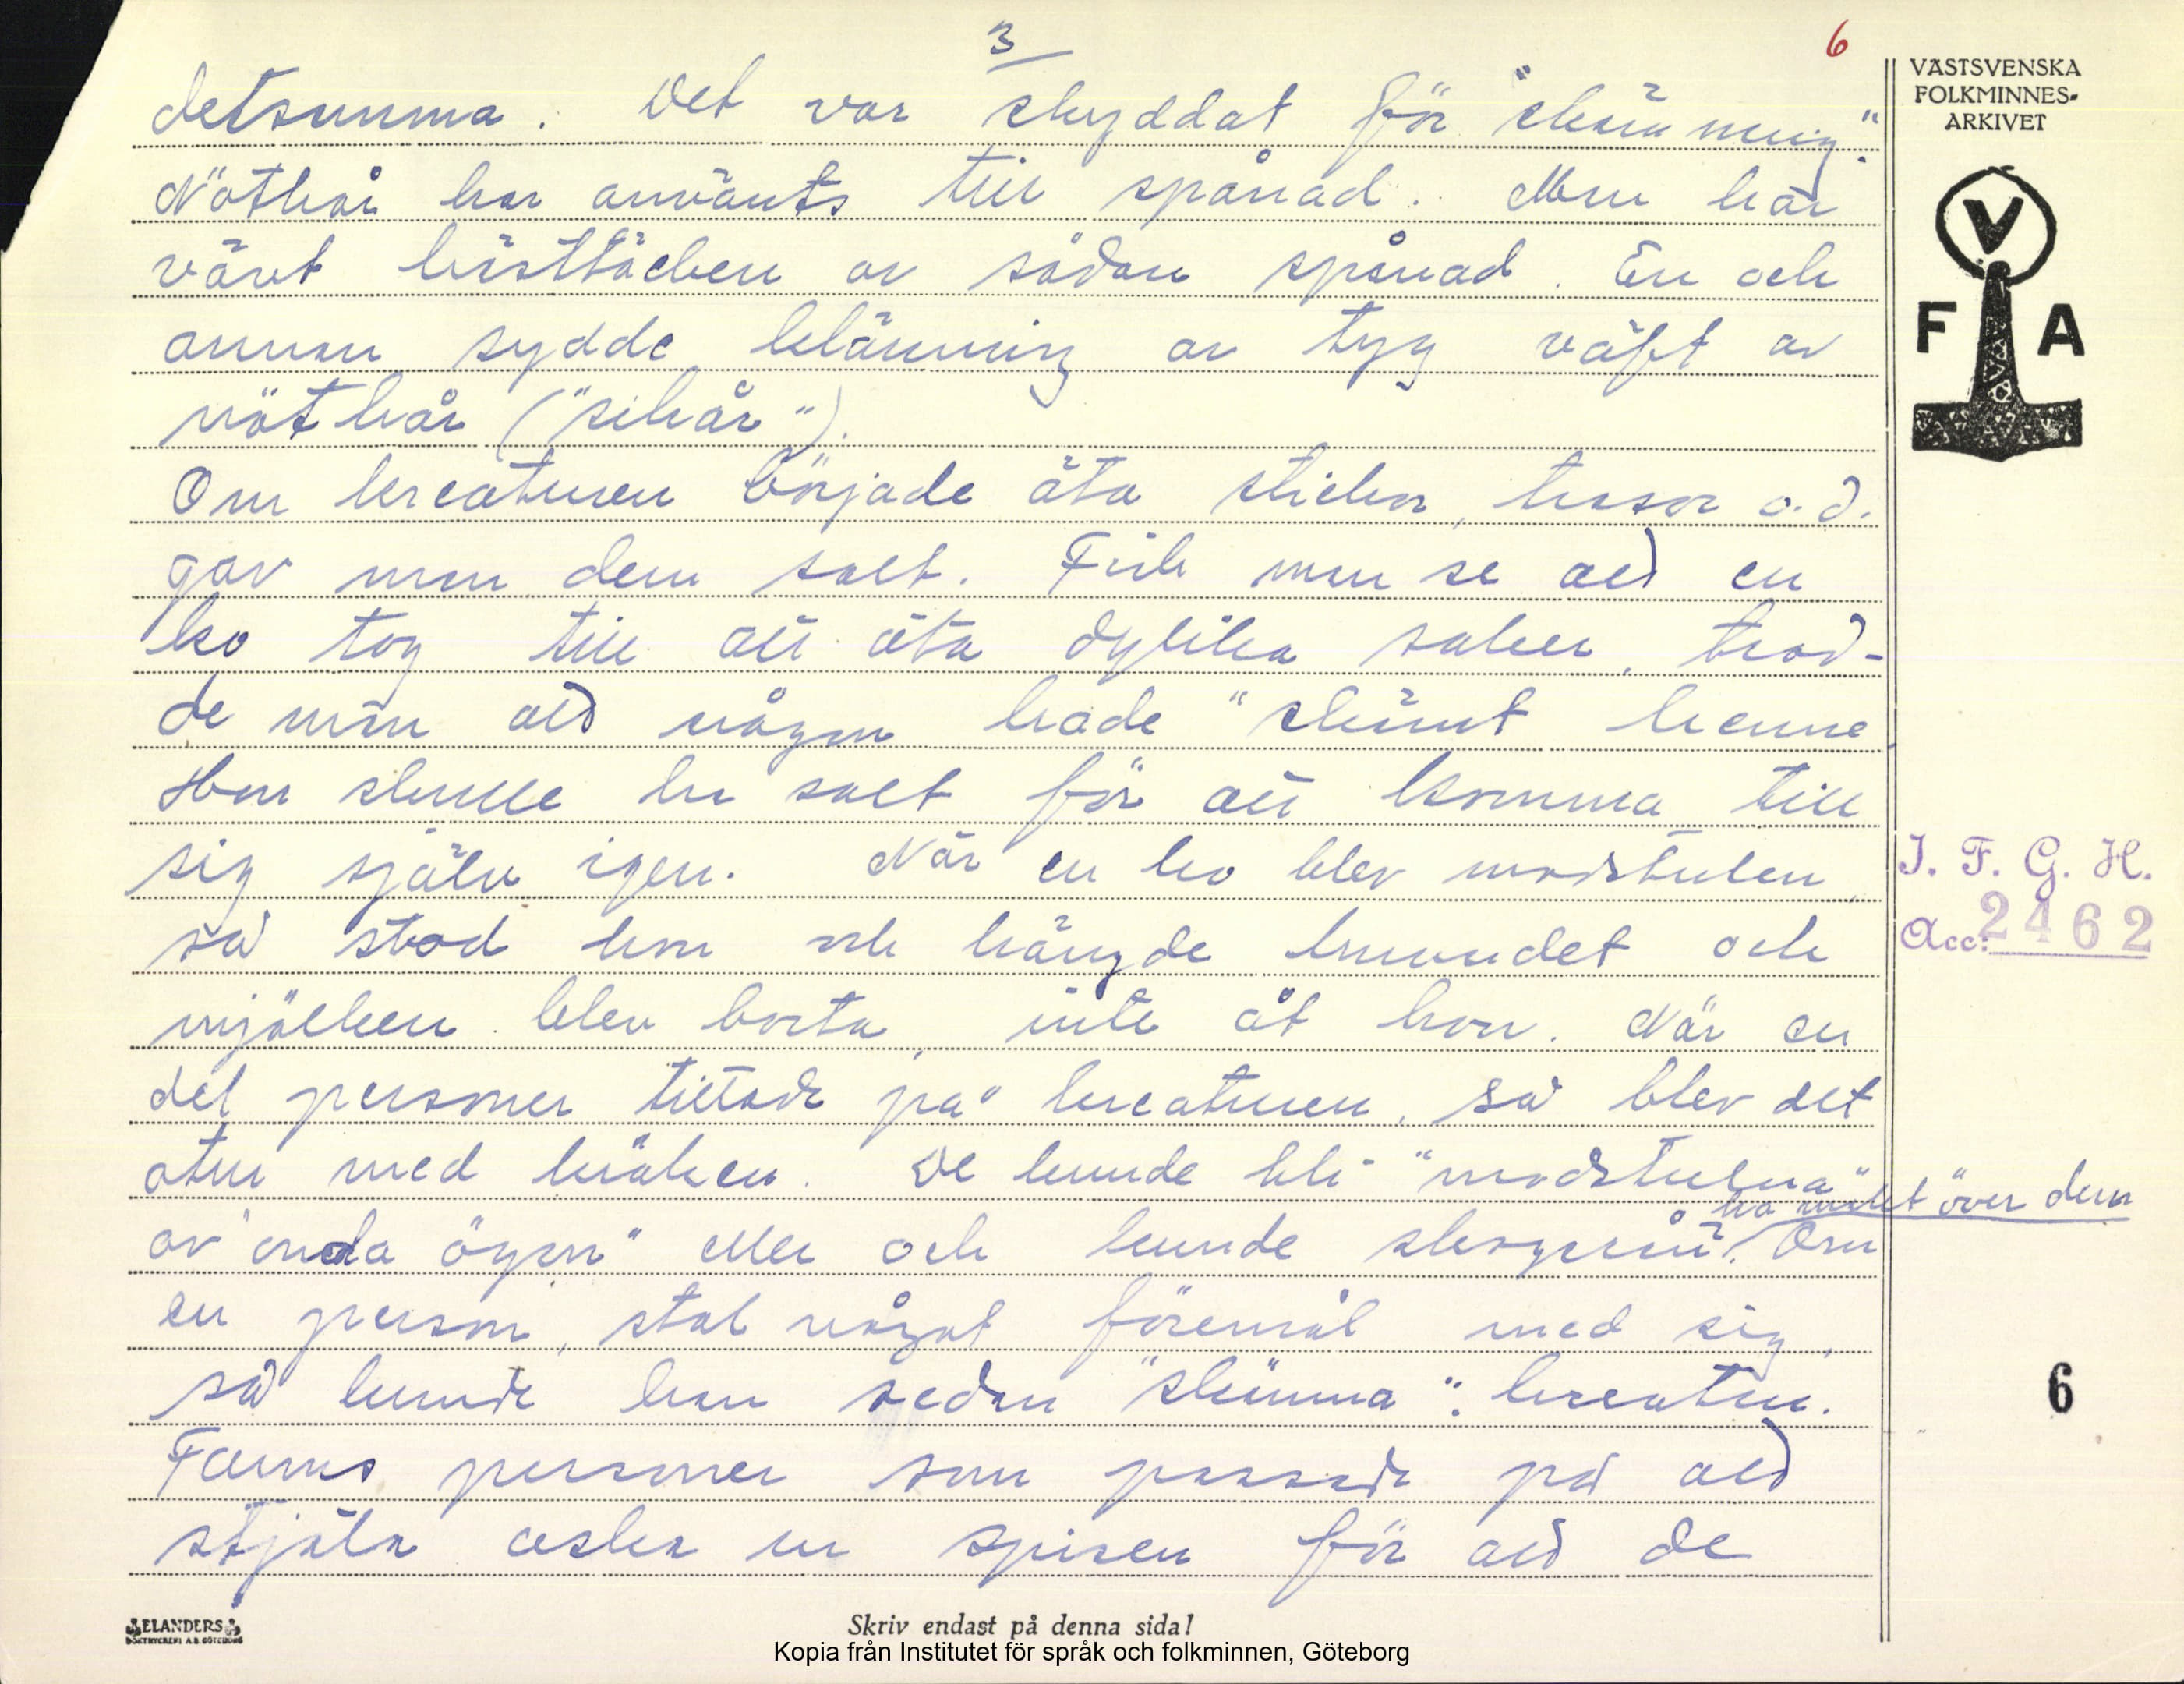 3
6
VÄSTSVENSKA
FOLKMINNES-
ARKIVET
detsamma. Det var skyddat för "skämning".
Nöthår har använts till spånad. Man har
vävt hästtäcken av sådan spånad. En och
annan sydde klänning av tyg väft av
nöthår ("sihår").
Om kreaturen började äta stickor, trasor o.d.
gav man dem salt. Fick man se att en
ko tog till att äta dylika saker, trod-
de man att någon hade "skämt henne
Hon skulle ha salt för att komma till
sig själv igen. När en ko blev modstulen,
så stod hon och hängde huvudet och
mjölken blev borta, inte åt hon. När en
del personer tittade på kreaturen, så blev det
otur med kräken. De kunde bli "modstulna"
av "onda ögon" eller och kunde skogsrå't
ha makt över dem
Om
en person, stal något föremål med sig,
så kunde han sedan "skämma": kreatur.
Fanns personer som passade på att
stjäla aska ur spisen för att de
V
F A
I. F. G. H.
Acc: 2462
6
ELANDERS
BOKTRYCKERI A.B. GÖTEBORG
Skriv endast på denna sida!
Kopia från Institutet för språk och folkminnen, Göteborg